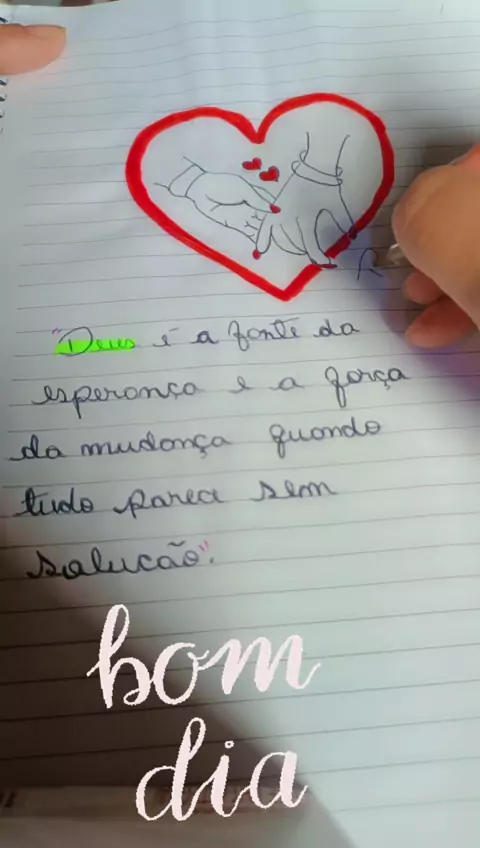 "Deus é a fonte da
esperança e a força
da mudança quando
tudo parece sem
solucão".
bom
dia